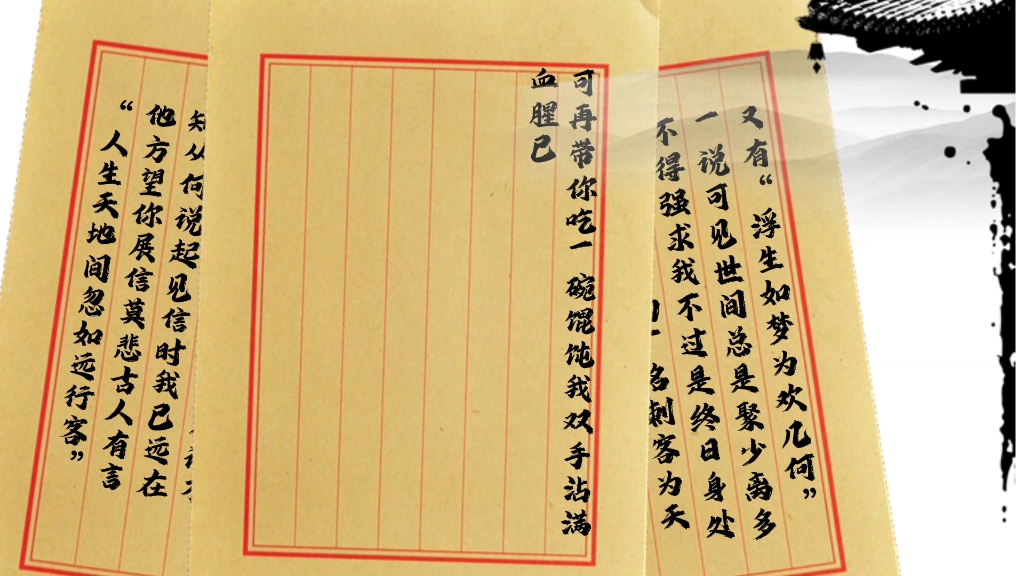 知从何说起见信时我已远在
他方望你展信莫悲古人有言
“人生天地间忽如远行客”
又有“浮生如梦为欢几何”
一说可见世间总是聚少离多
不得强求我不过是终日身处
名刺客为天
可再带你吃一碗馄饨我双手沾满
血腥已